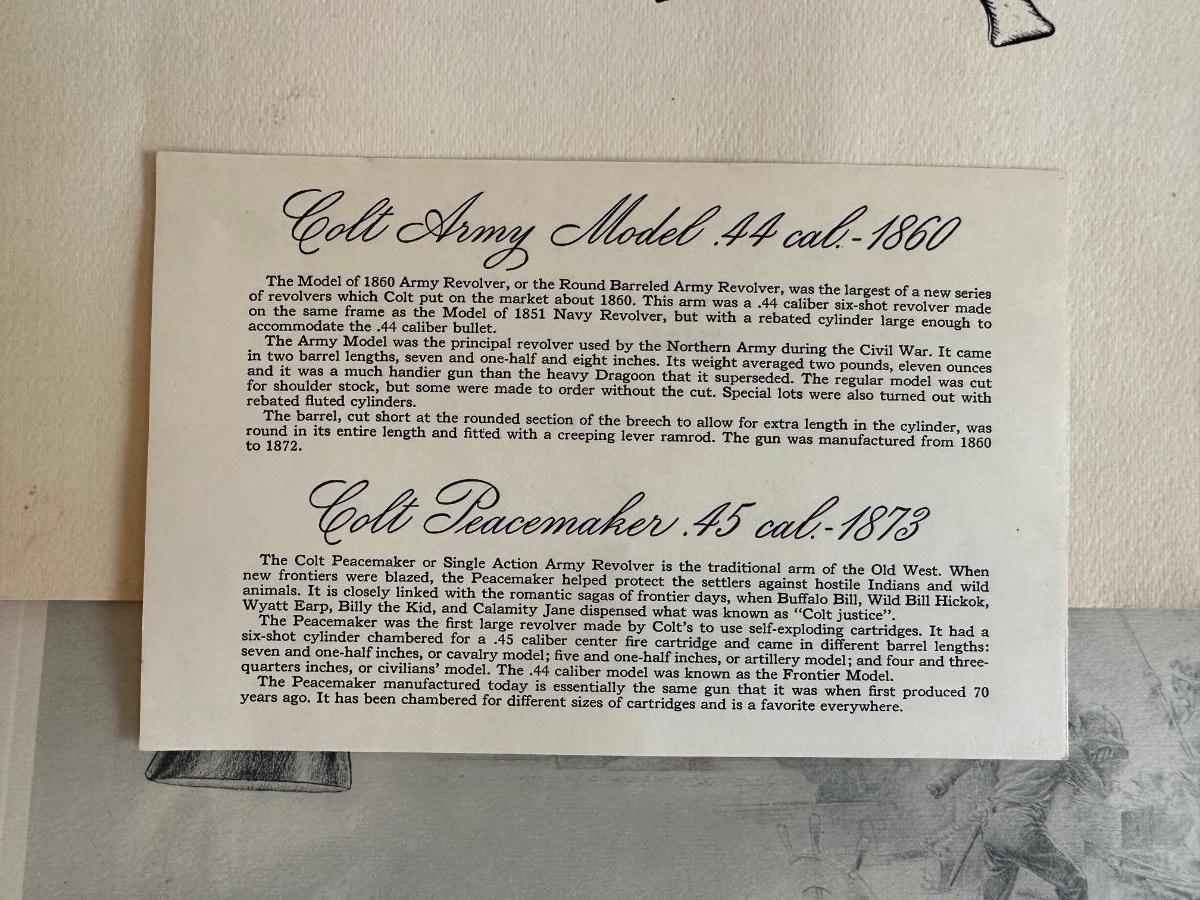 Colt Army Model .44 cal.-1860
The Model of 1860 Army Revolver, or the Round Barreled Army Revolver, was the largest of a new series
of revolvers which Colt put on the market about 1860. This arm was a .44 caliber six-shot revolver made
on the same frame as the Model of 1851 Navy Revolver, but with a rebated cylinder large enough to
accommodate the .44 caliber bullet.
The Army Model was the principal revolver used by the Northern Army during the Civil War. It came
in two barrel lengths, seven and one-half and eight inches. Its weight averaged two pounds, eleven ounces
and it was a much handier gun than the heavy Dragoon that it superseded. The regular model was cut
for shoulder stock, but some were made to order without the cut. Special lots were also turned out with
rebated fluted cylinders.
The barrel, cut short at the rounded section of the breech to allow for extra length in the cylinder, was
round in its entire length and fitted with a creeping lever ramrod. The gun was manufactured from 1860
to 1872.
Colt Peacemaker .45 cal.-1873
The Colt Peacemaker or Single Action Army Revolver is the traditional arm of the Old West. When
new frontiers were blazed, the Peacemaker helped protect the settlers against hostile Indians and wild
animals. It is closely linked with the romantic sagas of frontier days, when Buffalo Bill, Wild Bill Hickok,
Wyatt Earp, Billy the Kid, and Calamity Jane dispensed what was known as “Colt justice”.
The Peacemaker was the first large revolver made by Colt's to use self-exploding cartridges. It had a
six-shot cylinder chambered for a .45 caliber center fire cartridge and came in different barrel lengths:
seven and one-half inches, or cavalry model; five and one-half inches, or artillery model; and four and three-
quarters inches, or civilians' model. The .44 caliber model was known as the Frontier Model.
The Peacemaker manufactured today is essentially the same gun that it was when first produced 70
years ago. It has been chambered for different sizes of cartridges and is a favorite everywhere.